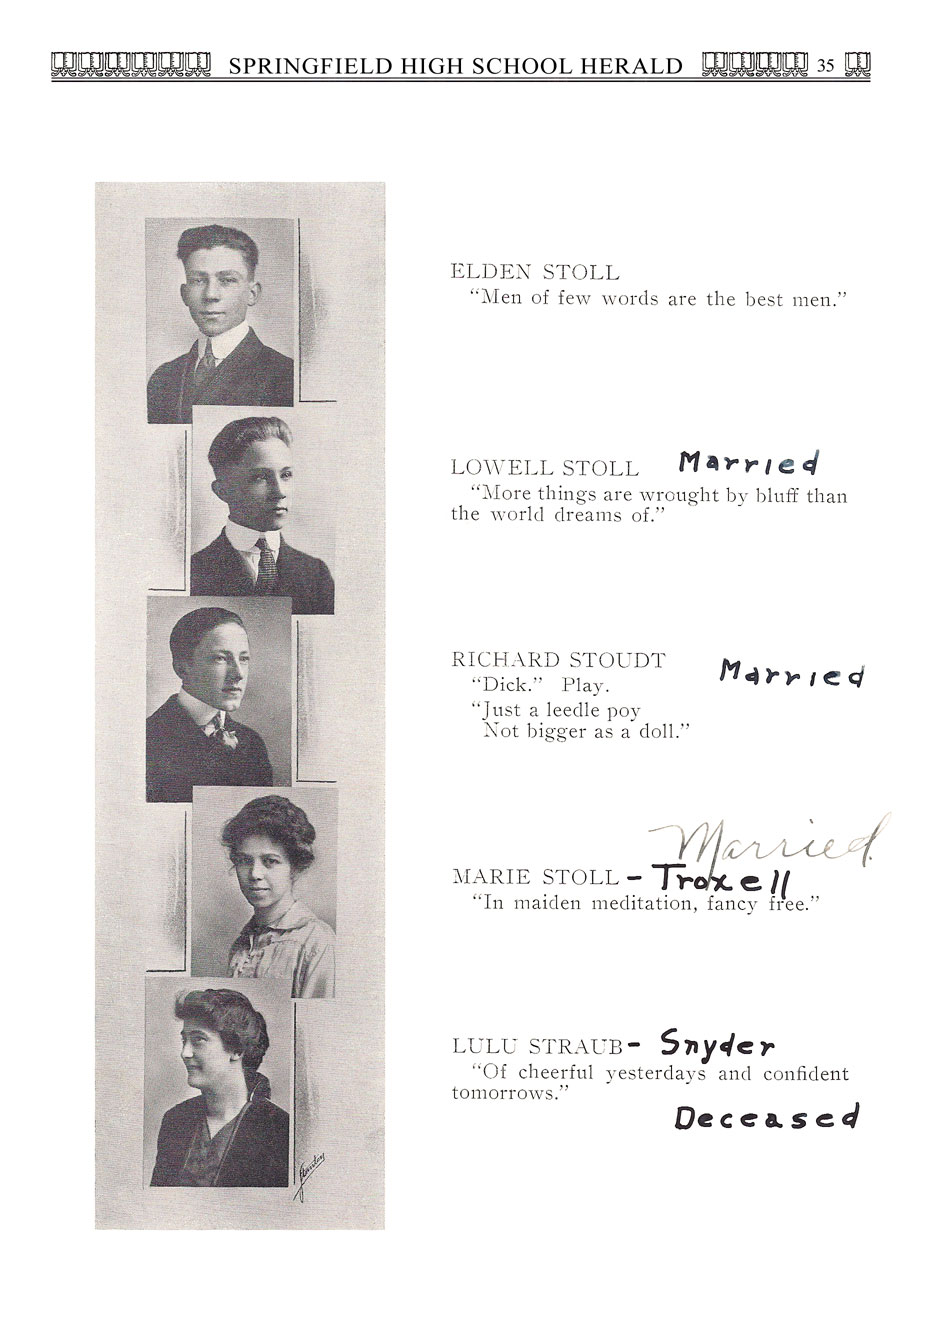 SPRINGFIELD HIGH SCHOOL HERALD 35
ELDEN STOLL
“Men of few words are the best men.”
LOWELL STOLL Married
“More things are wrought by bluff than
the world dreams of.”
RICHARD STOUDT Married
“Dick.” Play.
“Just a leedle poy
Not bigger as a doll.”
Married.
MARIE STOLL – Troxell
“In maiden meditation, fancy free.”
LULU STRAUB – Snyder
“Of cheerful yesterdays and confident
tomorrows.”
Deceased